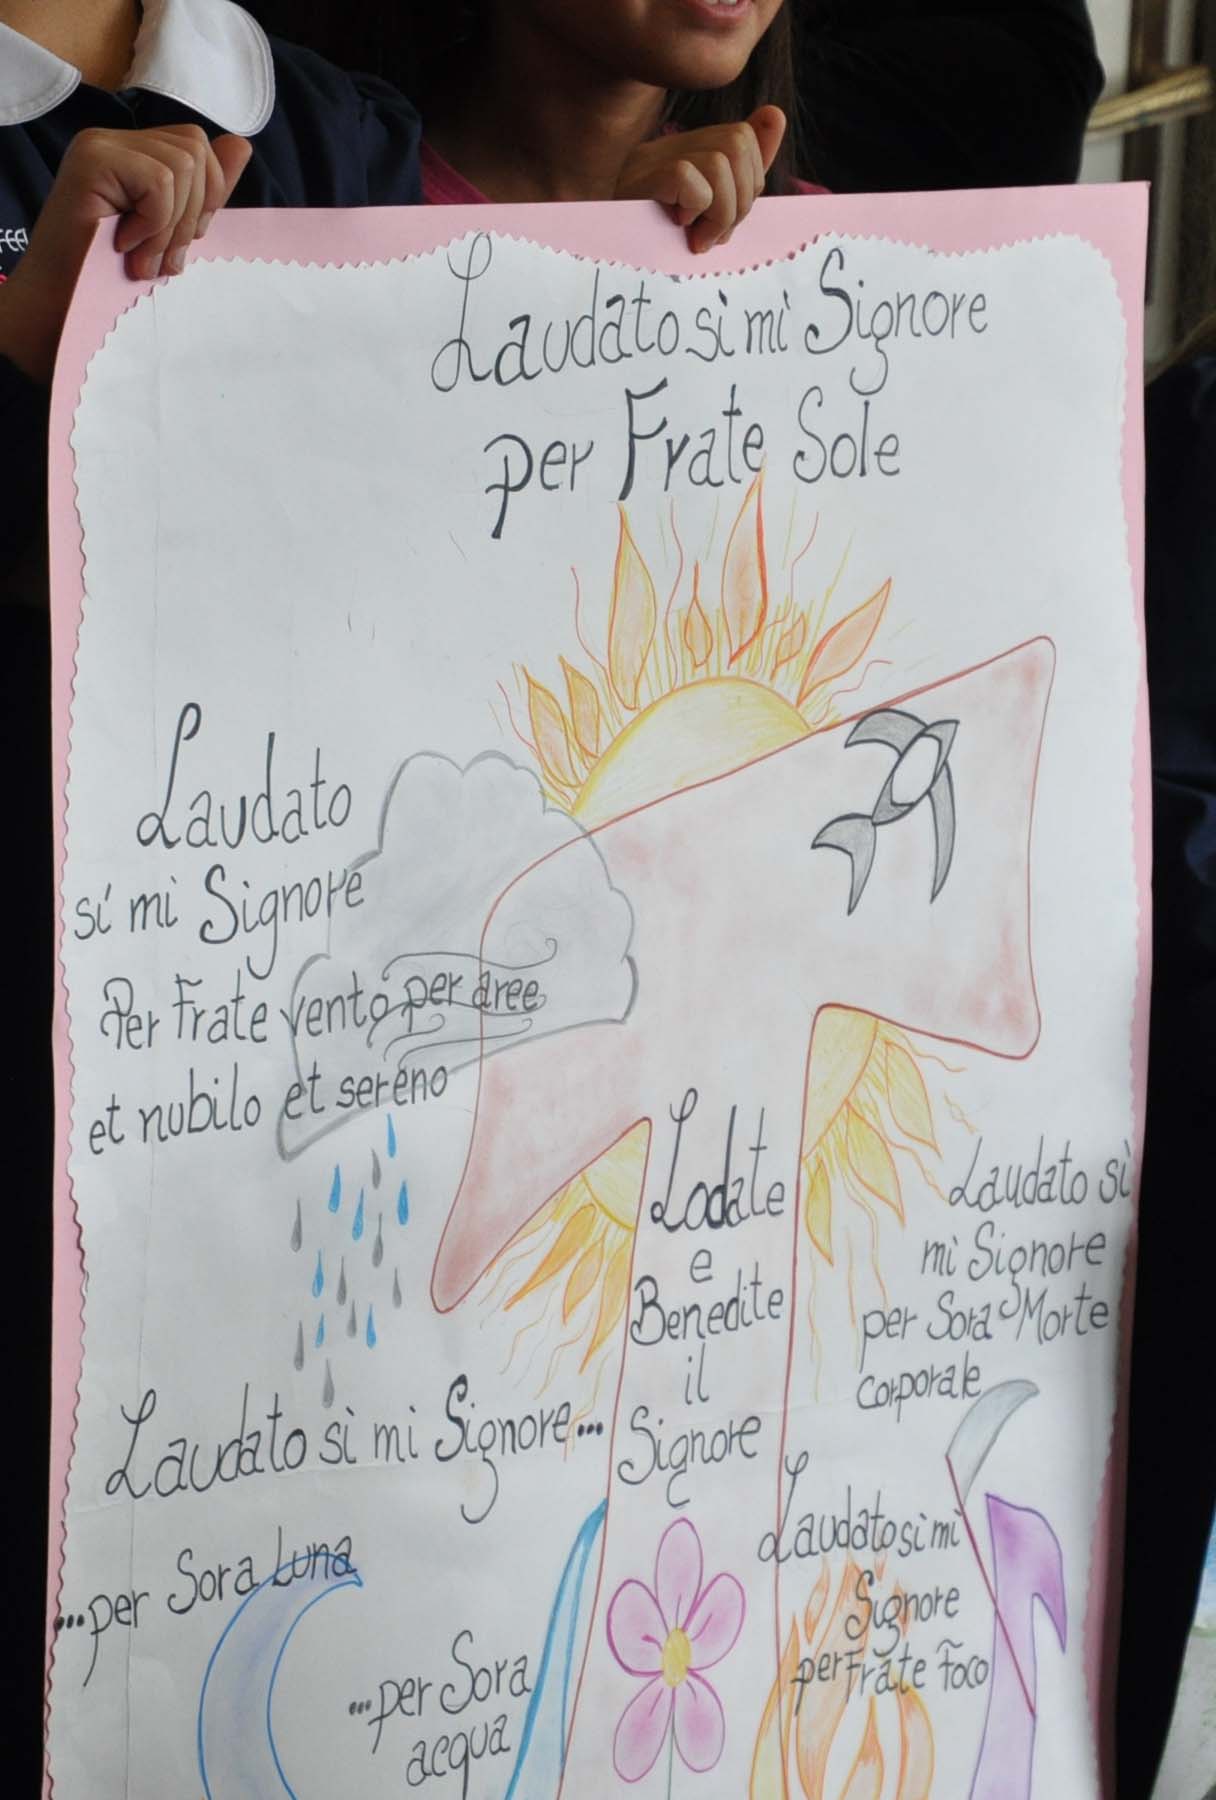 Laudato sì mì Signore
per Frate Sole
Laudato
sí mì Signore
Per Frate vento per aree
et nubilo et sereno
Lodate
e
Benedite
il
Signore
Laudato sì
mì Signore
per Sora Morte
corporale
Laudato sì mi Signore...
...per Sora Luna
...per Sora
acqua
Laudato sì mì
Signore
per Frate Foco